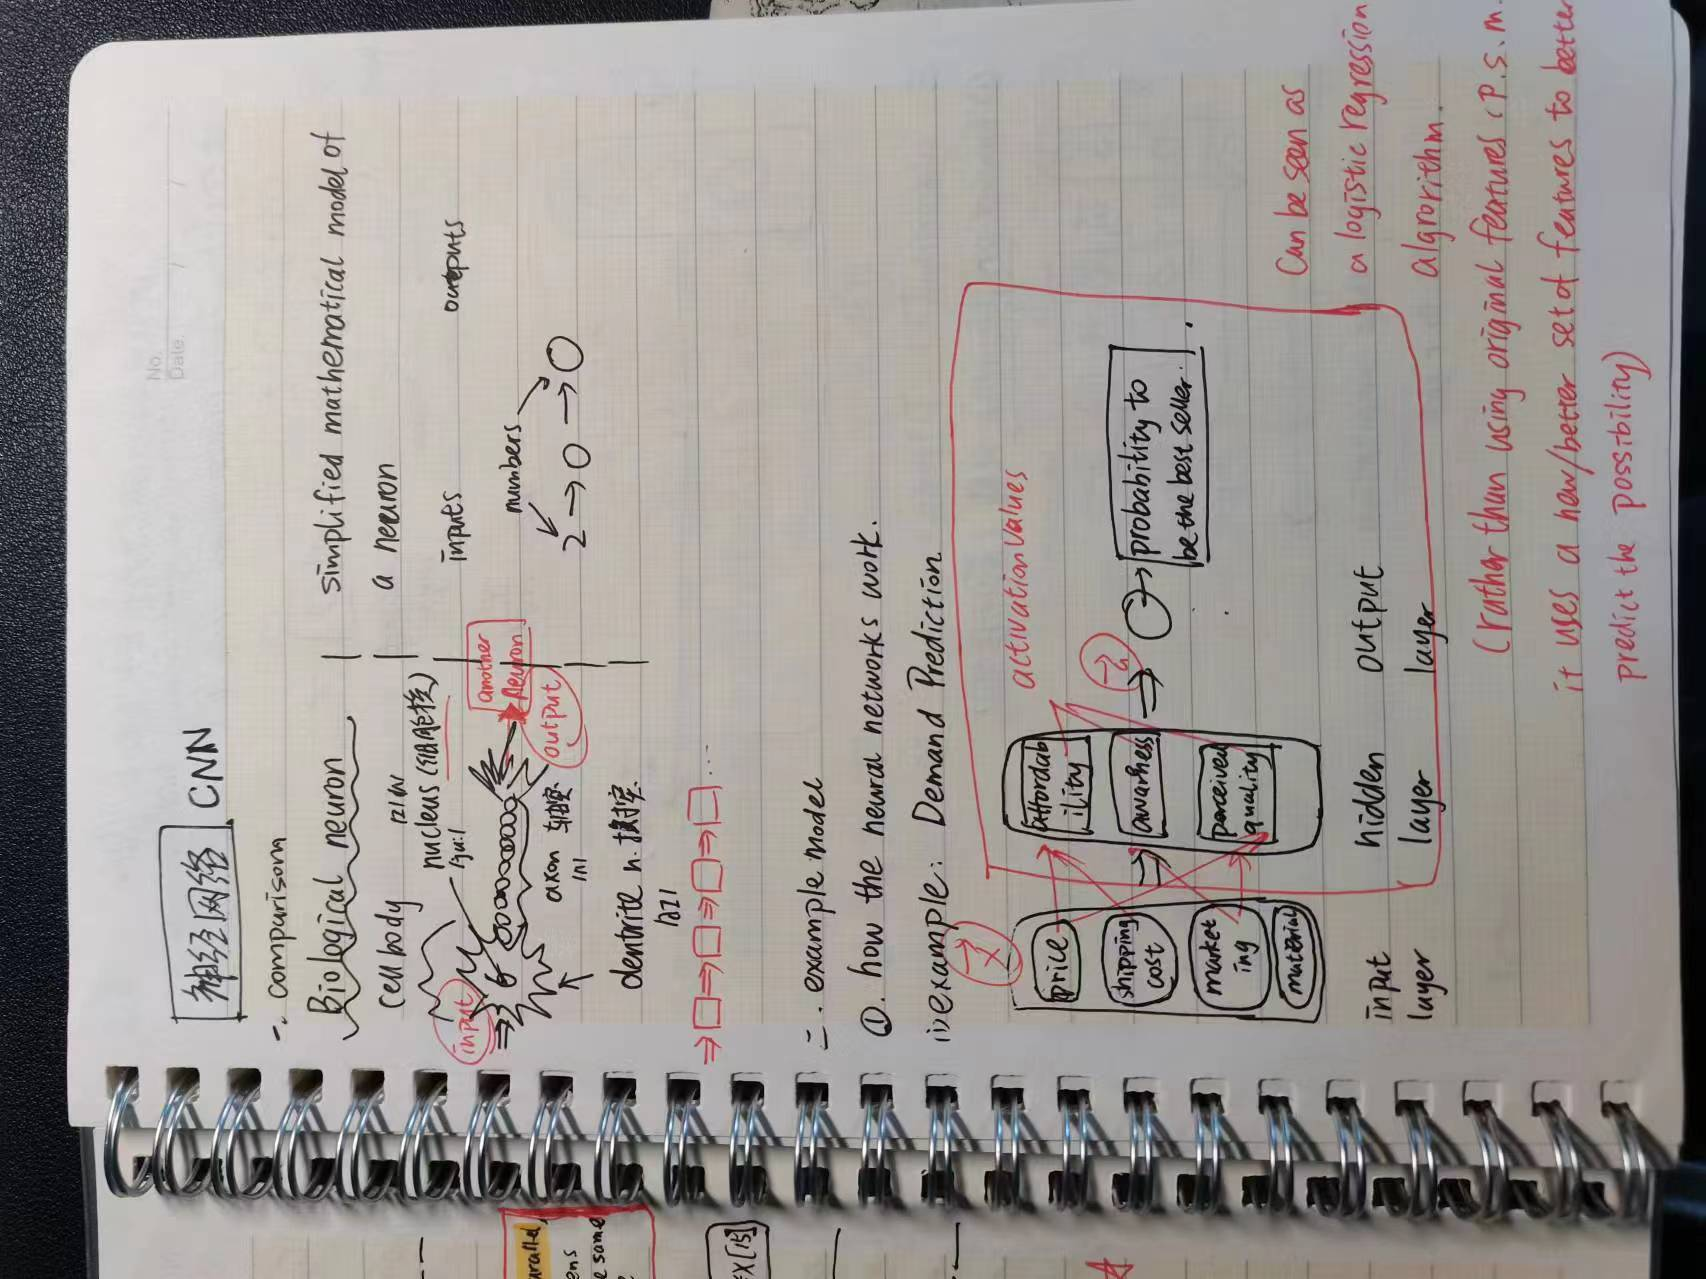 No.
Date.
神经网络 CNN
一. comparison
Biological neuron | simplified mathematical model of
cell body | a neuron
nucleus (细胞核)
inputs outputs
input
another
neuron
output
numbers
2 → O → O
axon 轴突
dentrite n. 树突
⇒ □ ⇒ □ ⇒ □ ⇒ □ ⇒ □ ...
二. example model
①. how the neural networks work.
i) example: Demand Prediction
x
activation values
price
shipping
cost
market
ing
material
affordab
ility
awarness
perceived
quality
a
probability to
be the best seller.
input
layer
hidden
layer
output
layer
Can be seen as
a logistic regression
algrorithm.
(rather than using original features (P. S. m.
it uses a new/better set of features to better
predict the possibility)
urallel
ens
e same
X[15]